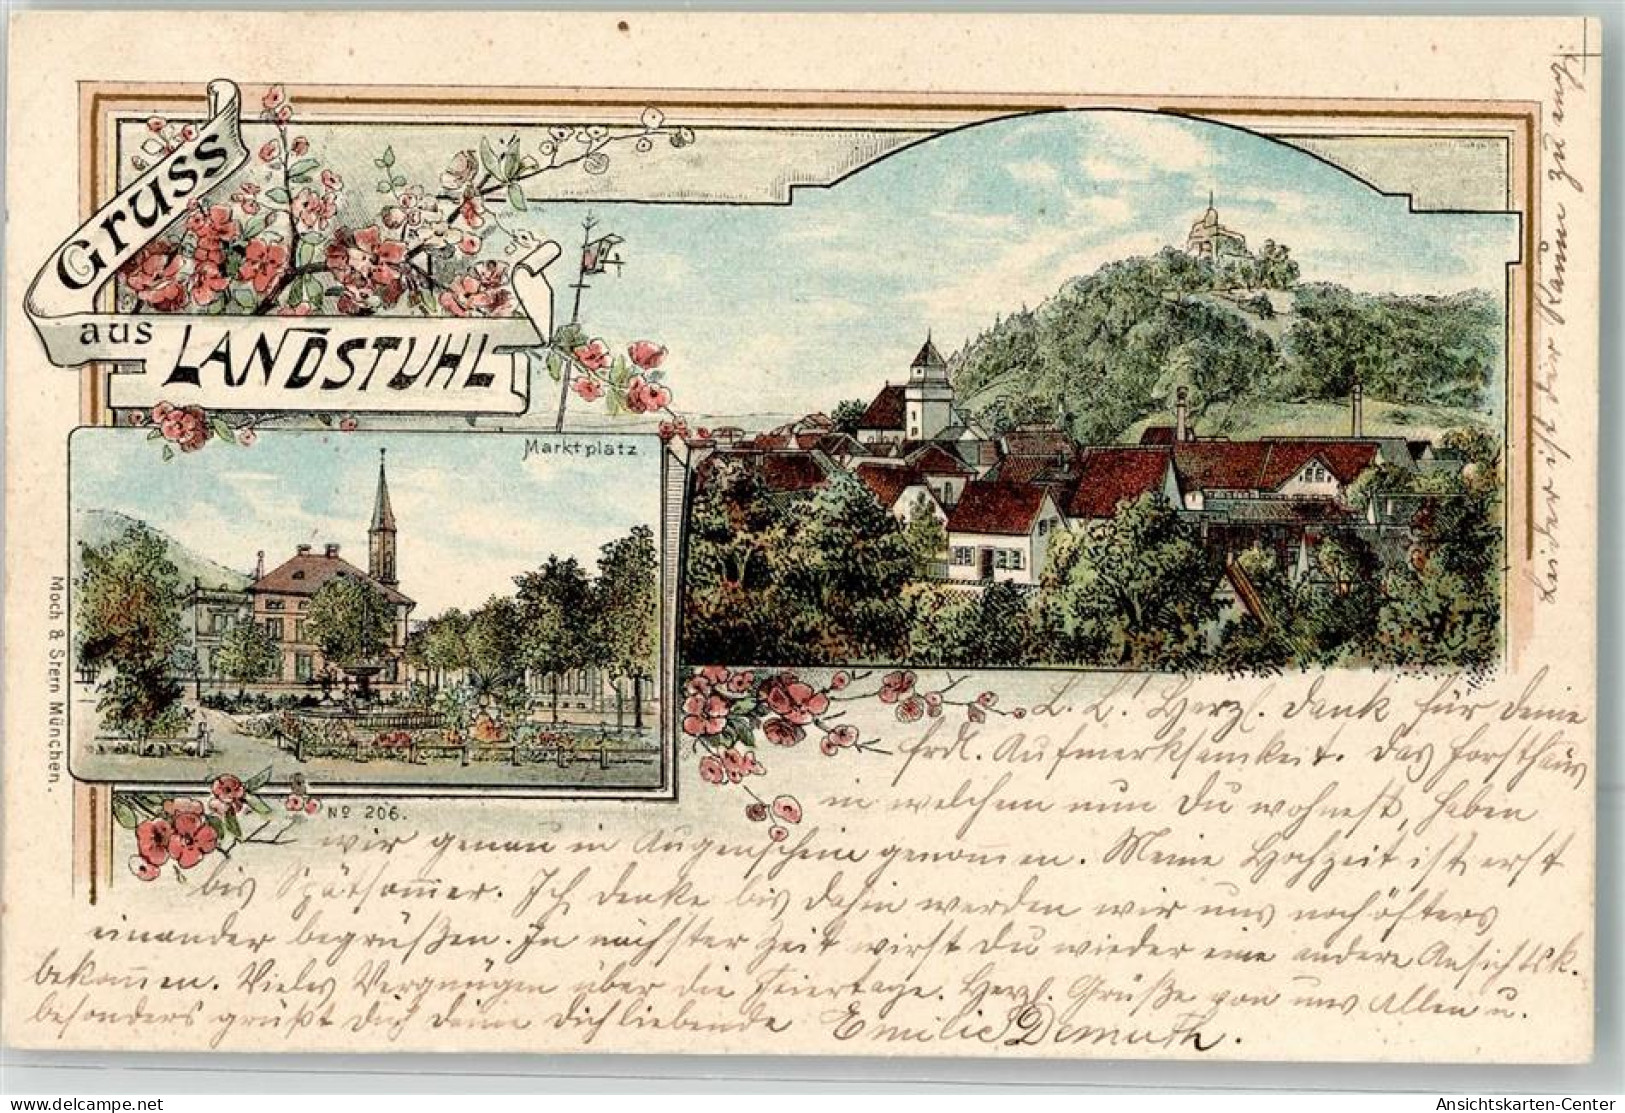 Gruss
aus LANDSTUHL
Marktplatz.
Moch & Stern München.
Nº 206.
L. L! Herzl. Dank für Deine
frdl. Aufmerksamkeit. Das Forsthaus
in welchem nun Du wohnest, haben
wir genau in Augenschein genom̅en. Meine Hochzeit ist erst
bis Spätsom̅er. Ich denke bis dahin werden wir uns noch öfters
einander begrüßen. In nächster Zeit wirst Du wieder eine andere Ansichtsk.
bekom̅en. Vieles Vergnügen über die Feiertage. Herzl. Grüße von uns Allen u.
besonders grüßt Dich Deine Dich liebende Emilie Demuth.
Leider ist der Raum zu eng.
Ansichtskarten-Center
WWW.DELCAMPE.NET